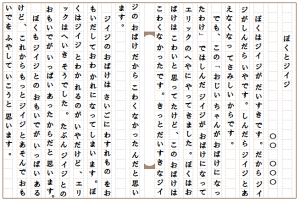 ぼくとジイジ
○○ ○○○
ぼくはジイジがだいすきです。だからジイ
ジがしんだらいやです。しんだらジイジとあ
えなくなってさみしいからです。
でも、この「おじいちゃんがおばけになっ
たわけ」ではしんだジイジがおばけになって
エリックのへやにやってきました。ぼくはお
ばけはこわいと思ってたけど、このおばけは
こわくなかったです。きっとだいすきなジイ
ジのおばけだからこわくなかったんだと思い
ます。
ジイジのおばけはさいごにわすれものをお
もいだしておわかれになってしまいます。ぼ
くはジイジとわかれるのがいやだけど、エリ
ックはへいきそうでした。たぶんジイジとの
おもいでがいっぱいあったからだと思います。
ぼくもジイジとのおもいでがいっぱいある
けど、これからもっとジイジとあそんでおも
いでをふやしていこうと思います。